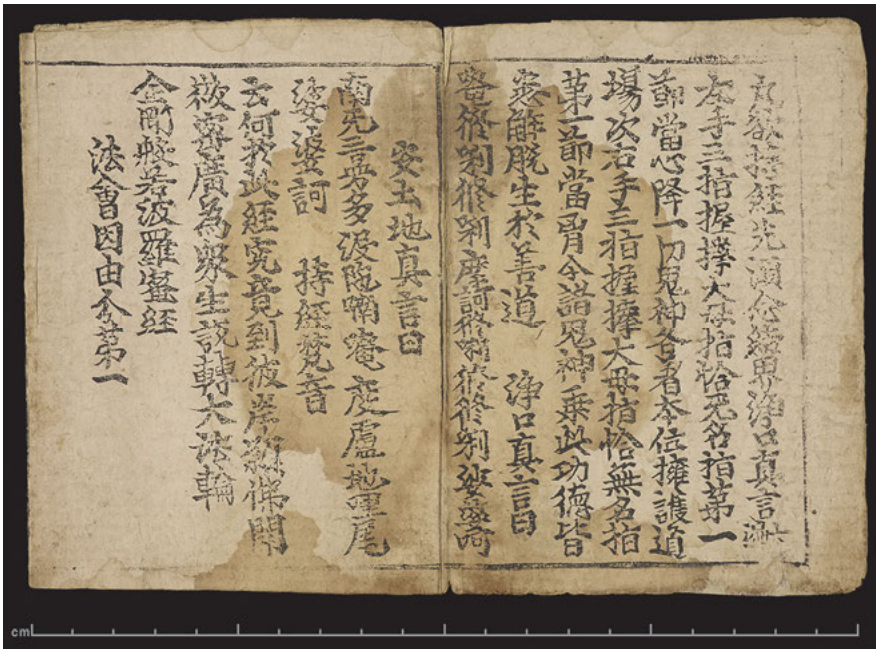 凡欲持經先須念結界淨口真言
左手三指握擇大母指恰无名指第一
節當心降一切鬼神各着本位擁護道
場次右手三指握擇大母指恰無名指
第一節當胷令諸鬼神乗此功德皆
悉解脫生於善道 淨口真言曰
唵修唎修唎摩訶修唎修修唎娑婆訶
安土地真言曰
南无三曼多沒陁喃唵度盧地哩尾
娑婆訶 持經梵音
云何於此經究竟到彼岸願佛開
微密廣為衆生說轉大法輪
金剛般若波羅蜜經
法會因由分第一
cm